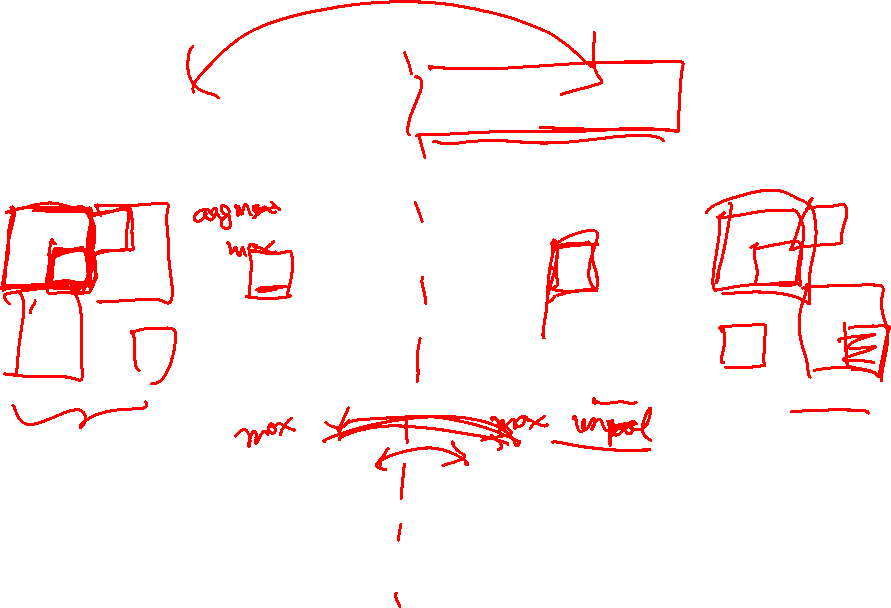 argmax
max
max max unpool